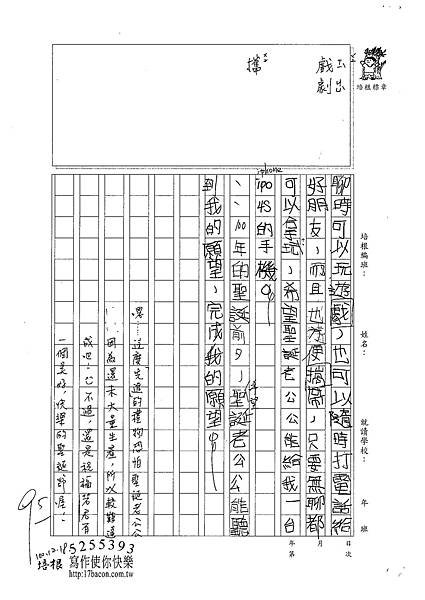 一齣
戲劇
攜
培根標章
培根編班：
姓名：
就讀學校：
年 班
聊時可以玩遊戲，也可以隨時打電話給
好朋友，而且也方便攜帶，只要無聊都
可以拿玩，希望聖誕老公公能給我一台
iphone
4S的手機。
100年的聖誕前夕，聖誕老公公能聽
到我的願望，完成我的願望。
嗯……這麼先進的禮物恐怕聖誕老公公
因為還未大量生產，所以較難達
成吧！不過，還是祝福若君有
一個美好快樂的聖誕節喔！
95
100.12.18
年 月 日
第 次
5255393
培根 寫作使你快樂
http://17bacon.com.tw/